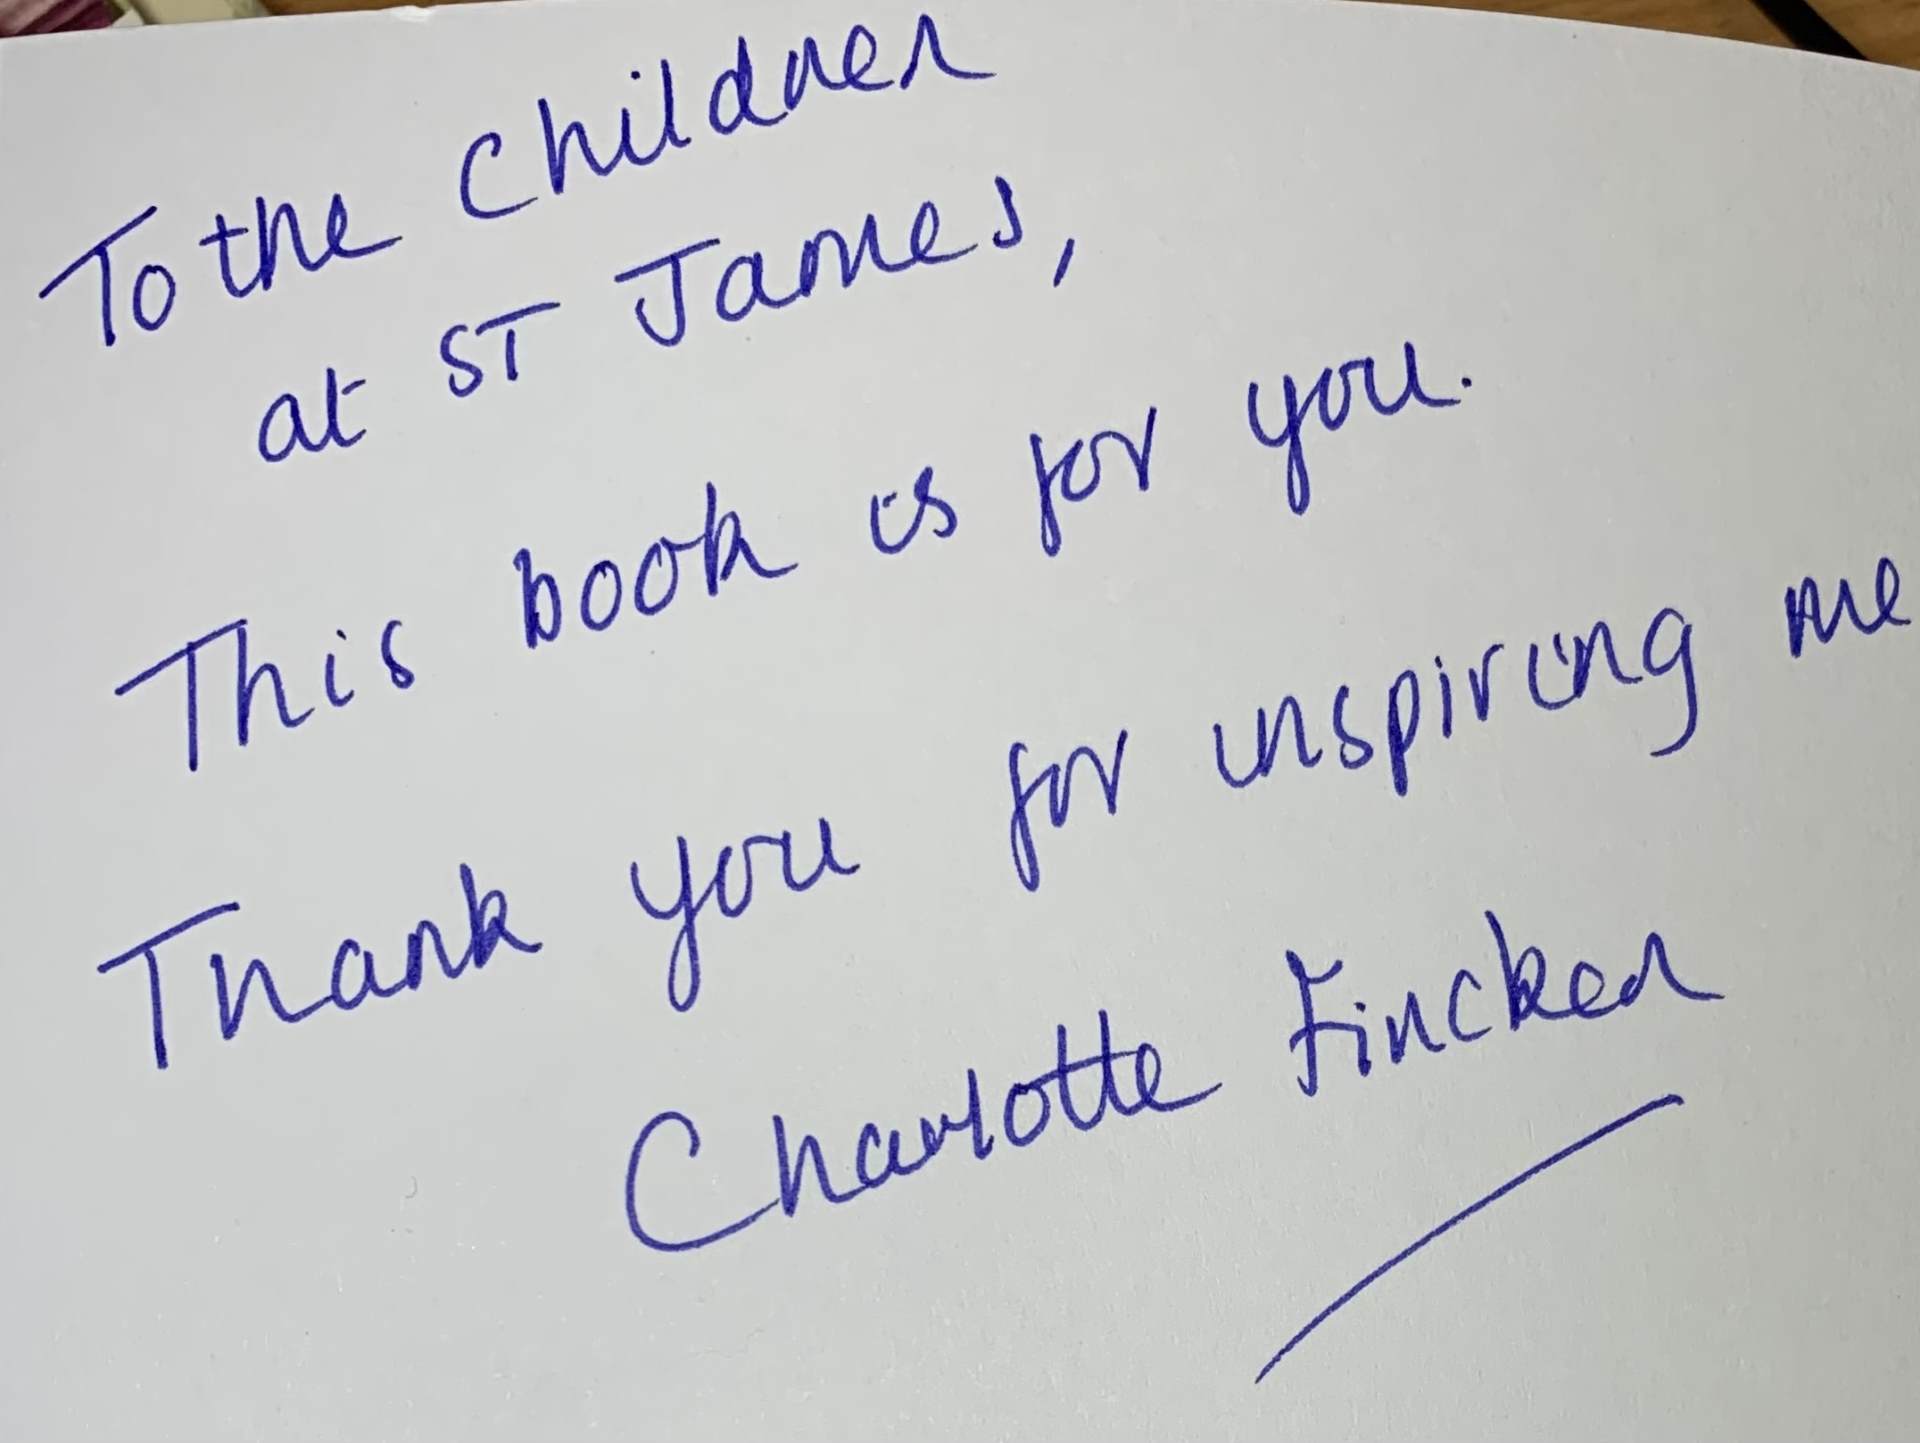 To the Children
at ST James,
This book is for you.
Thank you for inspiring me
Charlotte Fincken